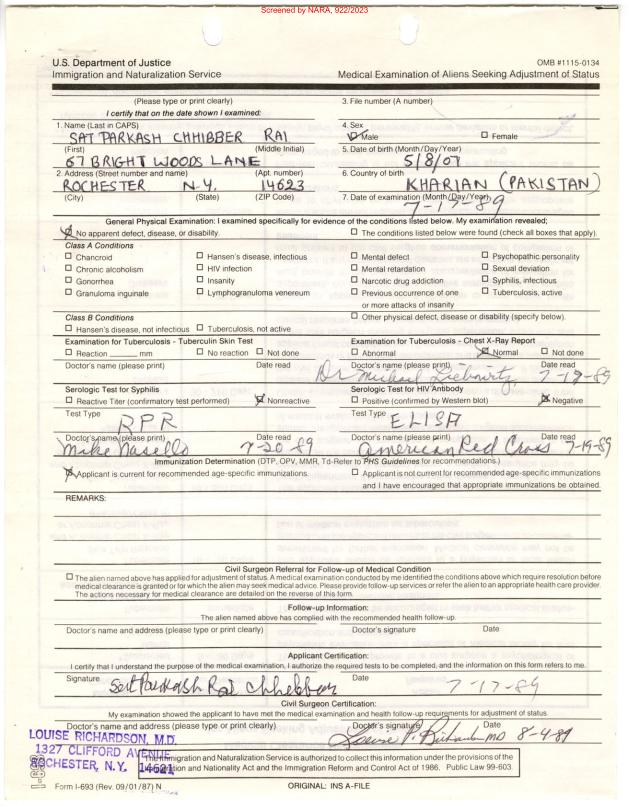 Screened by NARA, 922/2023
U.S. Department of Justice
Immigration and Naturalization Service
OMB #1115-0134
Medical Examination of Aliens Seeking Adjustment of Status
(Please type or print clearly)
I certify that on the date shown I examined:
3. File number (A number)
1. Name (Last in CAPS)
SAT PARKASH CHHIBBER RAI
(First) (Middle Initial)
4. Sex
☒ Male ☐ Female
67 BRIGHT WOODS LANE
5. Date of birth (Month/Day/Year)
5/8/07
2. Address (Street number and name) (Apt. number)
ROCHESTER N-Y. 14623
(City) (State) (ZIP Code)
6. Country of birth
KHARIAN (PAKISTAN)
7. Date of examination (Month/Day/Year)
7-17-89
General Physical Examination: I examined specifically for evidence of the conditions listed below. My examination revealed;
☒ No apparent defect, disease, or disability. ☐ The conditions listed below were found (check all boxes that apply).
Class A Conditions
☐ Chancroid ☐ Hansen's disease, infectious ☐ Mental defect ☐ Psychopathic personality
☐ Chronic alcoholism ☐ HIV infection ☐ Mental retardation ☐ Sexual deviation
☐ Gonorrhea ☐ Insanity ☐ Narcotic drug addiction ☐ Syphilis, infectious
☐ Granuloma inguinale ☐ Lymphogranuloma venereum ☐ Previous occurrence of one ☐ Tuberculosis, active
or more attacks of insanity
Class B Conditions ☐ Other physical defect, disease or disability (specify below).
☐ Hansen's disease, not infectious ☐ Tuberculosis, not active
Examination for Tuberculosis - Tuberculin Skin Test
☐ Reaction ______ mm ☐ No reaction ☐ Not done
Doctor's name (please print) Date read
Examination for Tuberculosis - Chest X-Ray Report
☐ Abnormal ☒ Normal ☐ Not done
Doctor's name (please print) Date read
Dr Michael 7-19-89
Serologic Test for Syphilis
☐ Reactive Titer (confirmatory test performed) ☒ Nonreactive
Test Type
RPR
Doctor's name (please print) Date read
Mike Nasello 7-20-89
Serologic Test for HIV Antibody
☐ Positive (confirmed by Western blot) ☒ Negative
Test Type
ELISA
Doctor's name (please print) Date read
American Red Cross 7-19-89
Immunization Determination (DTP, OPV, MMR, Td-Refer to PHS Guidelines for recommendations.)
☒ Applicant is current for recommended age-specific immunizations. ☐ Applicant is not current for recommended age-specific immunizations
and I have encouraged that appropriate immunizations be obtained.
REMARKS:
Civil Surgeon Referral for Follow-up of Medical Condition
☐ The alien named above has applied for adjustment of status. A medical examination conducted by me identified the conditions above which require resolution before
medical clearance is granted or for which the alien may seek medical advice. Please provide follow-up services or refer the alien to an appropriate health care provider.
The actions necessary for medical clearance are detailed on the reverse of this form.
Follow-up Information:
The alien named above has complied with the recommended health follow-up.
Doctor's name and address (please type or print clearly) Doctor's signature Date
Applicant Certification:
I certify that I understand the purpose of the medical examination, I authorize the required tests to be completed, and the information on this form refers to me.
Signature Date
Sat Parkash Rai Chhibber 7-17-89
Civil Surgeon Certification:
My examination showed the applicant to have met the medical examination and health follow-up requirements for adjustment of status.
Doctor's name and address (please type or print clearly) Doctor's signature Date
Louise P. Richardson MD 8-4-89
LOUISE RICHARDSON, M.D.
1327 CLIFFORD AVENUE
ROCHESTER, N.Y. 14621
The Immigration and Naturalization Service is authorized to collect this information under the provisions of the
Immigration and Nationality Act and the Immigration Reform and Control Act of 1986, Public Law 99-603.
Form I-693 (Rev. 09/01/87) N ORIGINAL: INS A-FILE